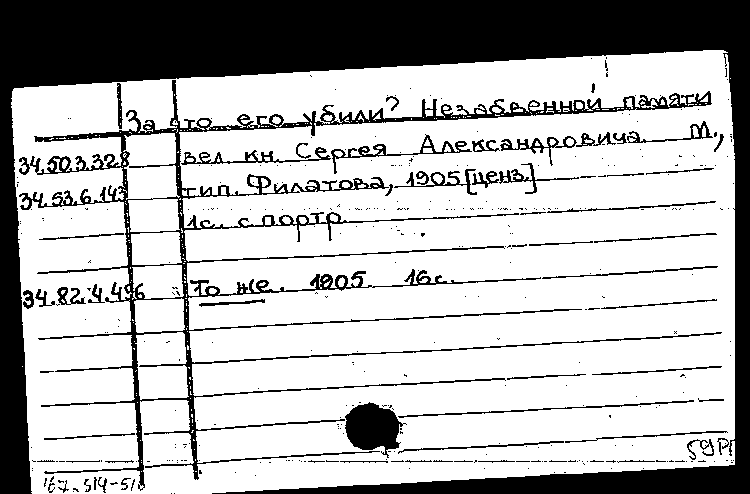 За что его убили? Незабвенной памяти
34.50.3.328 вел. кн. Сергея Александровича. М.,
34.53.6.143 тип. Филатова, 1905 [ценз.]
1с. с портр.
34.82.4.496 То же. 1905. 16с.